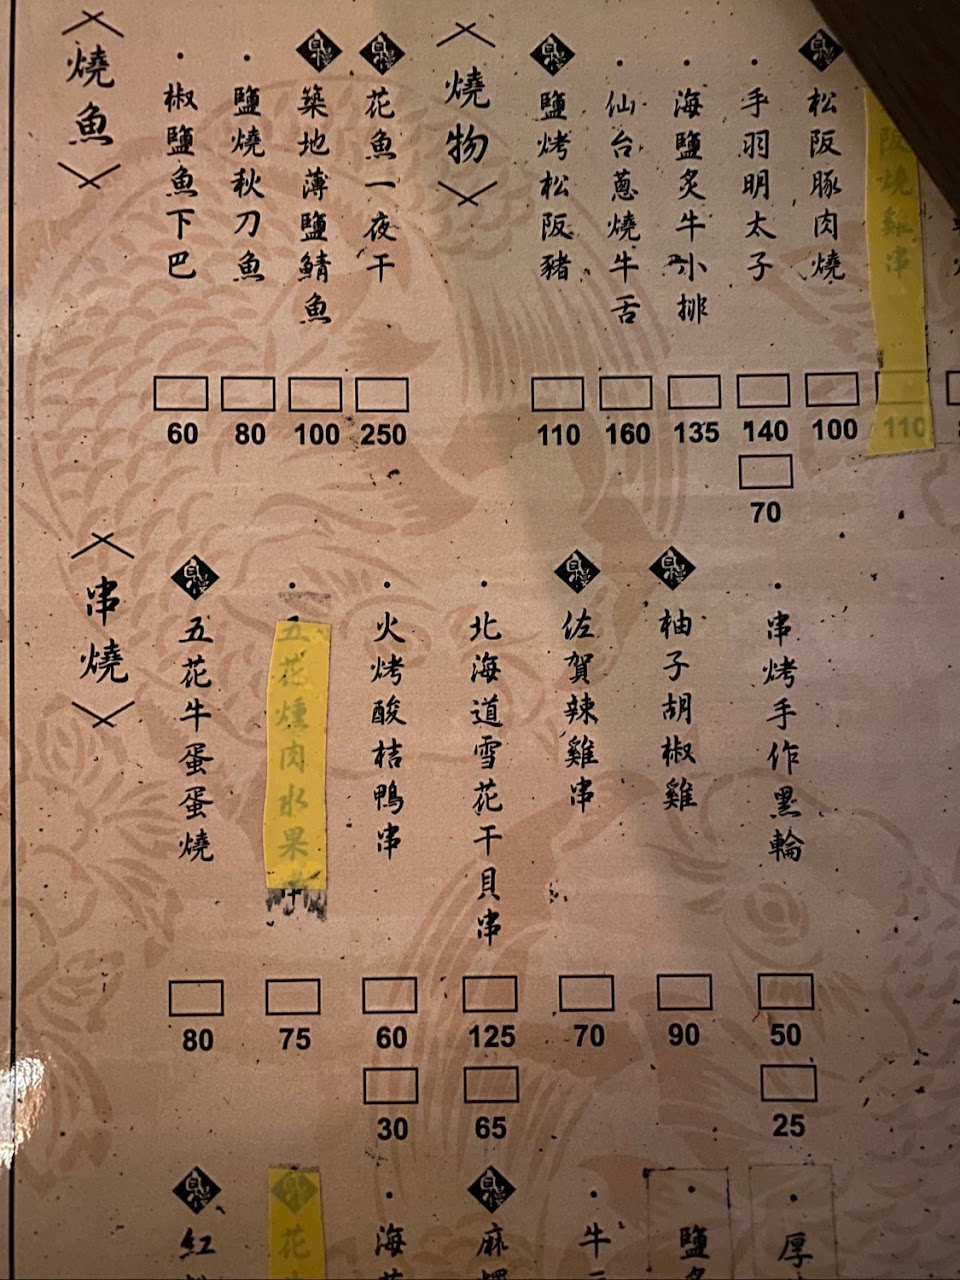 燒魚
椒鹽魚下巴
60
鹽燒秋刀魚
80
自慢
築地薄鹽鯖魚
100
自慢
花魚一夜干
250
燒物
自慢
鹽烤松阪豬
110
仙台蔥燒牛舌
160
海鹽炙牛小排
135
手羽明太子
140
70
自慢
松阪豚肉燒
100
阪燒雞串
110
串燒
自慢
五花牛蛋蛋燒
80
五花燻肉水果串
75
火烤酸桔鴨串
60
30
北海道雪花干貝串
125
65
自慢
佐賀辣雞串
70
自慢
柚子胡椒雞
90
串烤手作黑輪
50
25
自慢
紅
花
海
自慢
麻
牛
鹽
厚